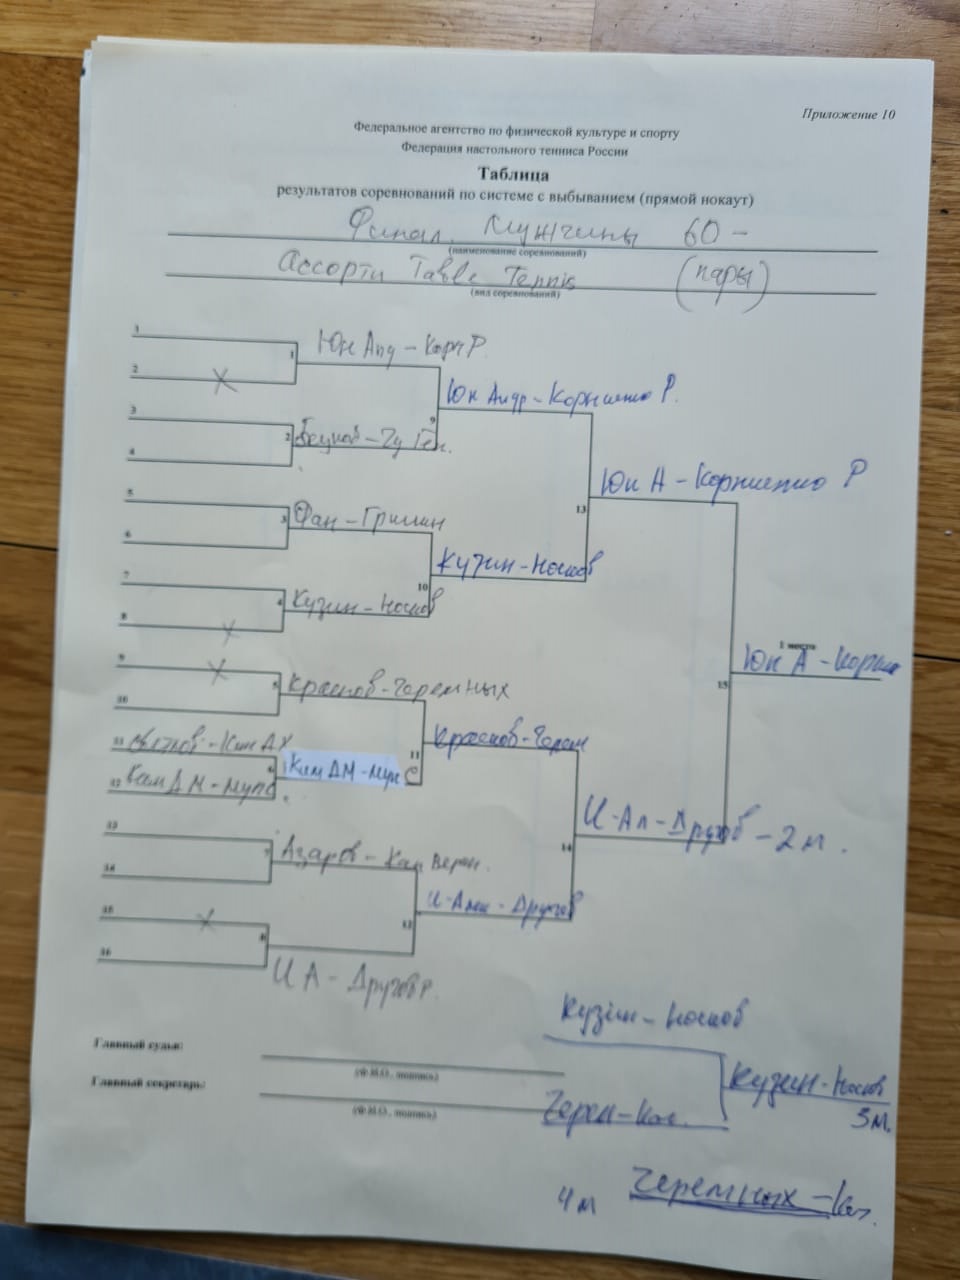 Приложение 10
Федеральное агентство по физической культуре и спорту
Федерация настольного тенниса России
Таблица
результатов соревнований по системе с выбыванием (прямой нокаут)
Финал. Мужчины 60 -
(наименование соревнований)
Ассорти Table Tennis (пары)
(вид соревнований)
1
1 Юн Анд - Корн Р.
2 X
9 Юн Андр - Корниенко Р.
3
2 - Чу Ген.
4
13 Юн А - Корниенко Р
5
3 Фан - Гришин
6
10 Кузин - Носков
7
4 Кузин - Носков
8 X
1 место
15 Юн А - Корни
9 X
5 Краснов - Черемных
10
11 Краснов - Черем
11 - Ким ДХ
6 Ким ДМ - Мун С
12 Ким ДМ - Мун С
14 И-Ал - Другов - 2 м.
13
7 Азаров - Кан Верн.
14
12 И-Алек - Другов
15 X
8 И А - Другов Р.
16
Кузин - Носков
Главный судья:
(Ф.И.О., подпись)
Кузин - Носков
3 м.
Главный секретарь:
(Ф.И.О., подпись)
Черем -
4 м Черемных -